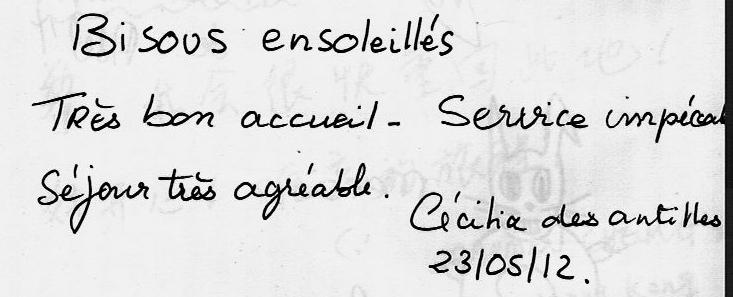 Bisous ensoleillés
Très bon accueil - Service impécal
Séjour très agréable.
Cécilia des antilles
23/05/12.